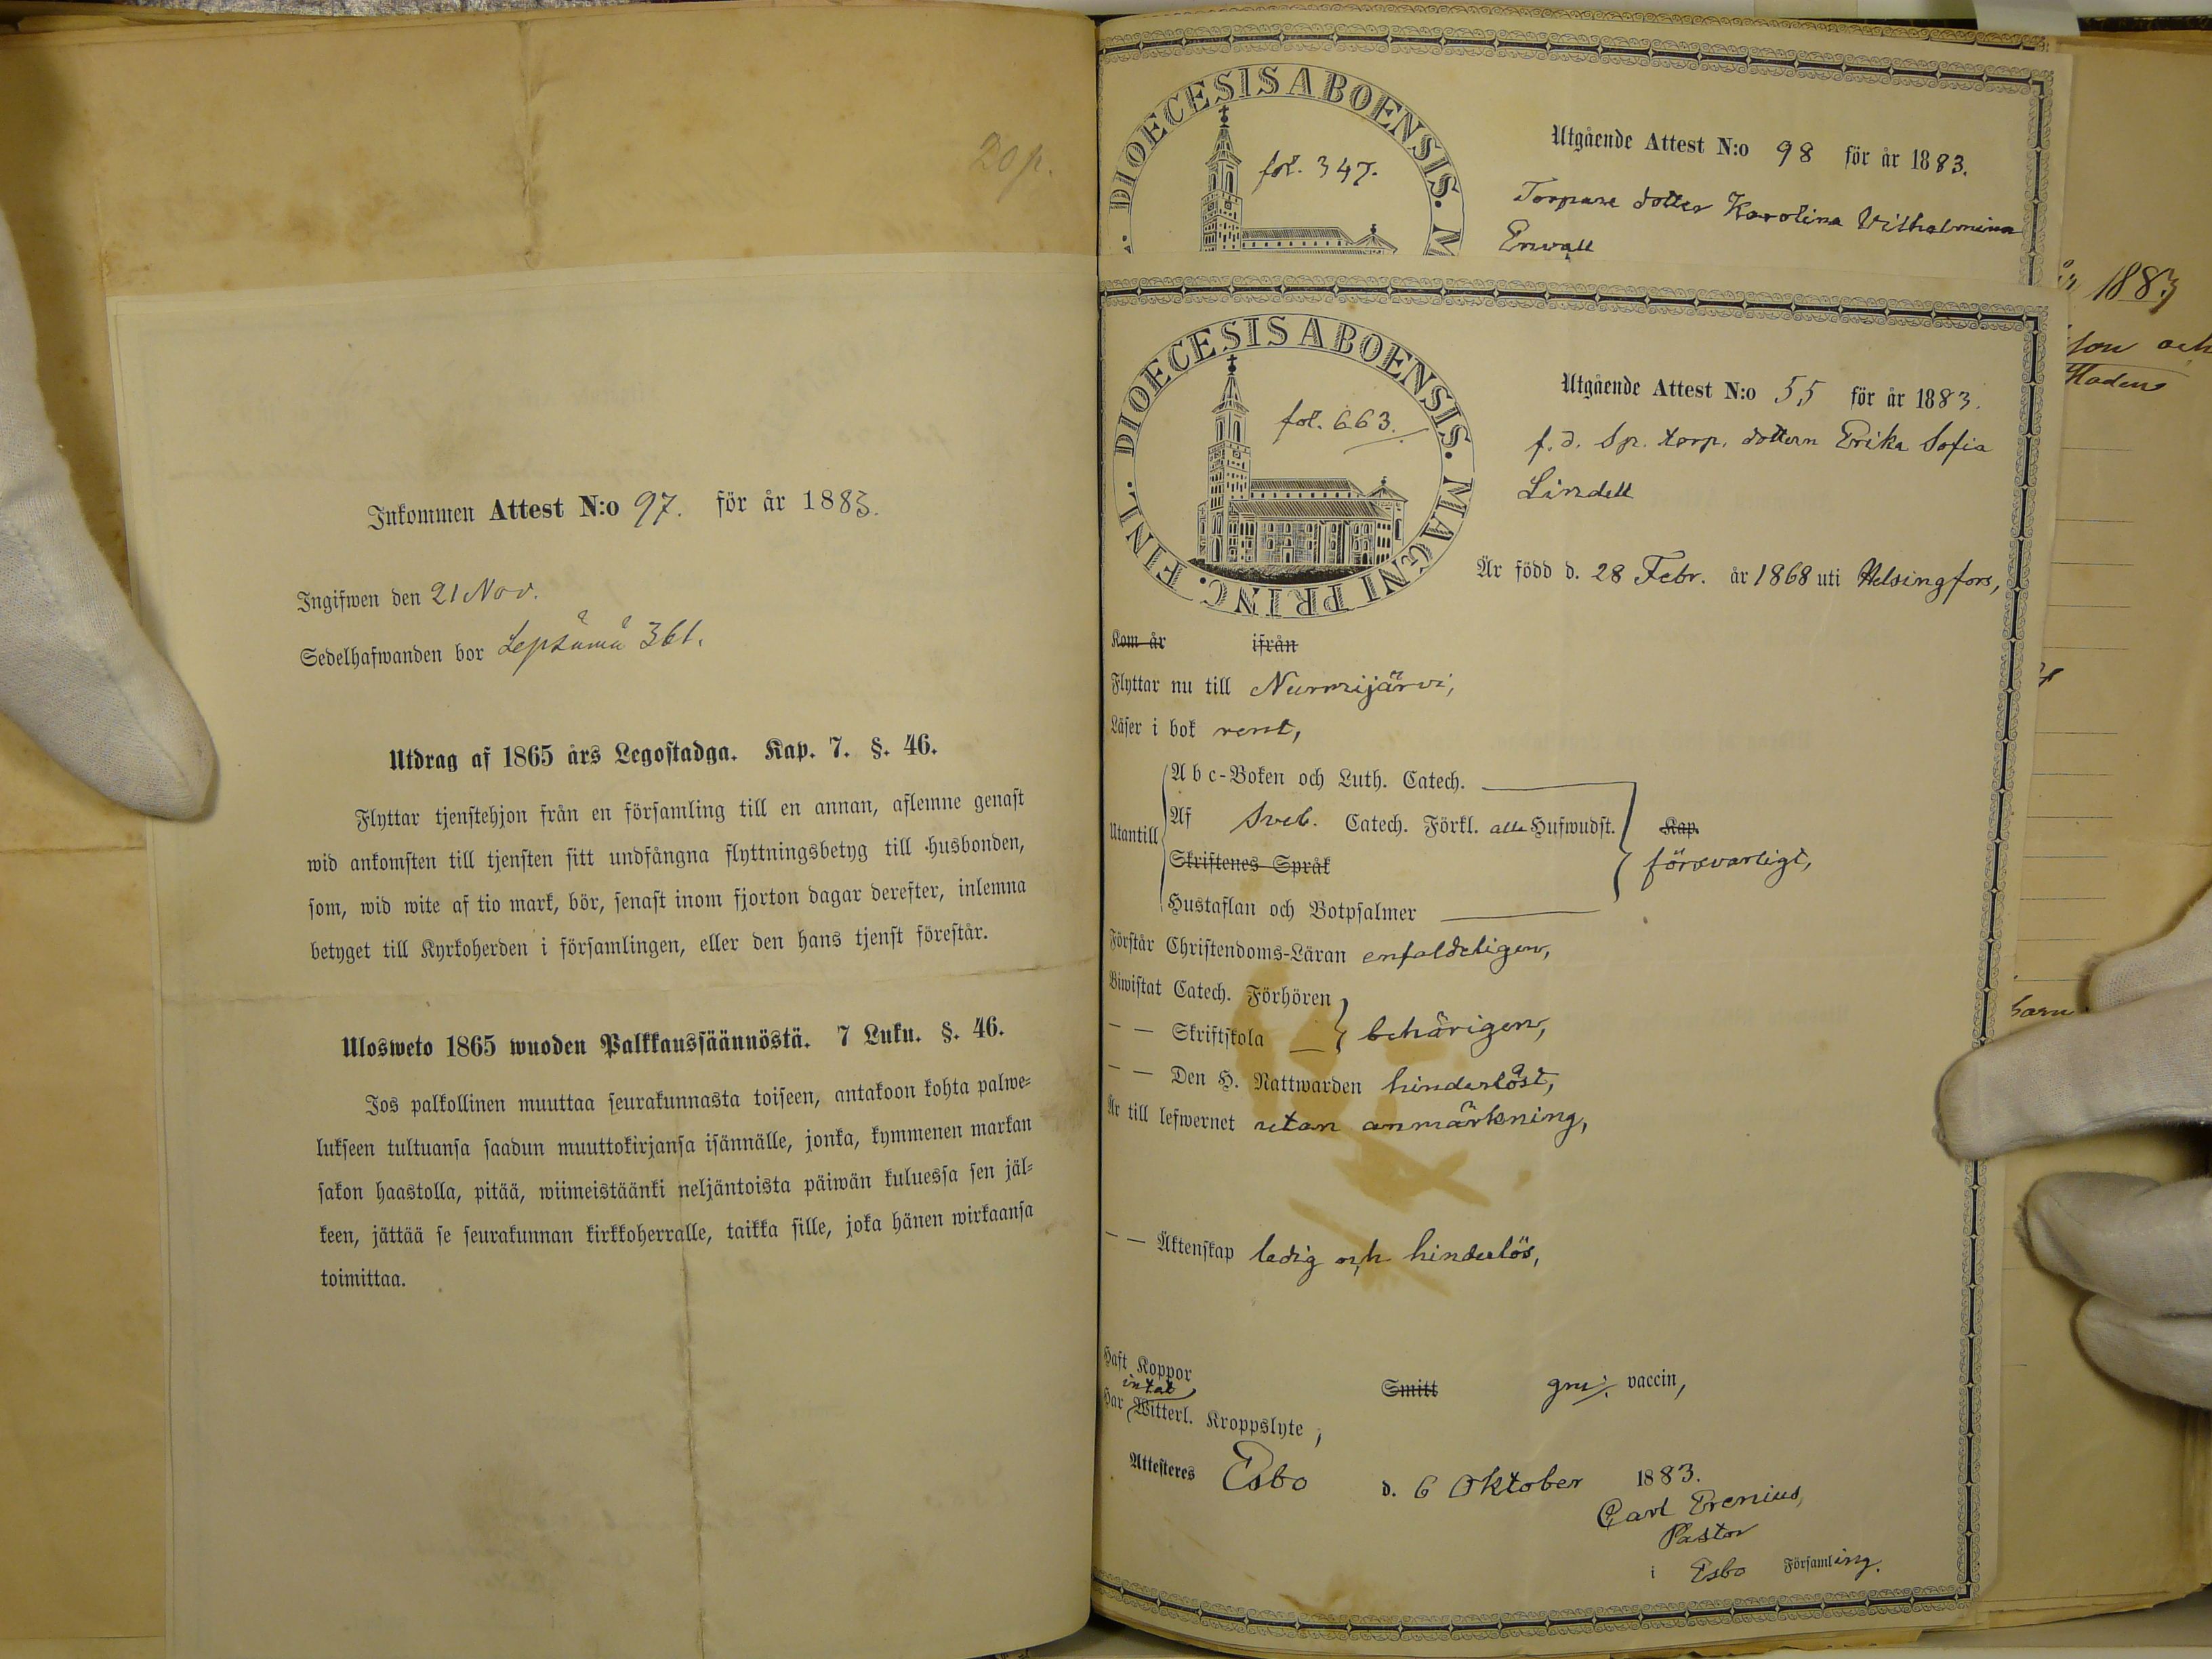 20 p.
Inkommen Attest N:o 97. för år 1883.
Ingifwen den 21 Nov.
Sedelhafwanden bor Lepsämä 361.
Utdrag af 1865 års Legostadga. Kap. 7. §. 46.
Flyttar tjenstehjon från en församling till en annan, aflemne genast
wid ankomsten till tjensten sitt undfångna flyttningsbetyg till husbonden,
som, wid wite af tio mark, bör, senast inom fjorton dagar derefter, inlemna
betyget till Kyrkoherden i församlingen, eller den hans tjenst förestår.
Ulosweto 1865 wuoden Palkkaussäännöstä. 7 Luku. §. 46.
Jos palkollinen muuttaa seurakunnasta toiseen, antakoon kohta palwe-
lukseen tultuansa saadun muuttokirjansa isännälle, jonka, kymmenen markan
sakon haastolla, pitää, wiimeistäänki neljäntoista päiwän kuluessa sen jäl-
keen, jättää se seurakunnan kirkkoherralle, taikka sille, joka hänen wirkaansa
toimittaa.
DIOECESIS ABOENSIS. M
fol. 347.
Utgående Attest N:o 98 för år 1883.
Torpare dotter Karolina Vilhelmina
Enwall
FINL. DIOECESIS ABOENSIS. MAGNI PRINC.
fol. 663.
Utgående Attest N:o 55 för år 1883.
f. d. Sp. torp. dottern Erika Sofia
Lindell
Är född d. 28 Febr. år 1868 uti Helsingfors,
Kom år ifrån
Flyttar nu till Nurmijärvi,
Läser i bok rent,
Utantill
Abc-Boken och Luth. Catech.
Af Sveb. Catech. Förkl. alla Hufwudst. Kap.
Skriftenes Språk
försvarligt,
Hustaflan och Botpsalmer
Förstår Christendoms-Läran enfaldeligen,
Biwistat Catech. Förhören
— — Skriftskola behörigen,
— — Den H. Nattwarden hinderlöst,
Är till lefwernet utan anmärkning,
— — Äktenskap ledig och hinderlös,
Haft Koppor Smitt gm vaccin,
intet
Har Witterl. Kroppslyte,
Attesteres Esbo d. 6 Oktober 1883.
Carl Erenius,
Pastor
i Esbo Församling.
1883
son och